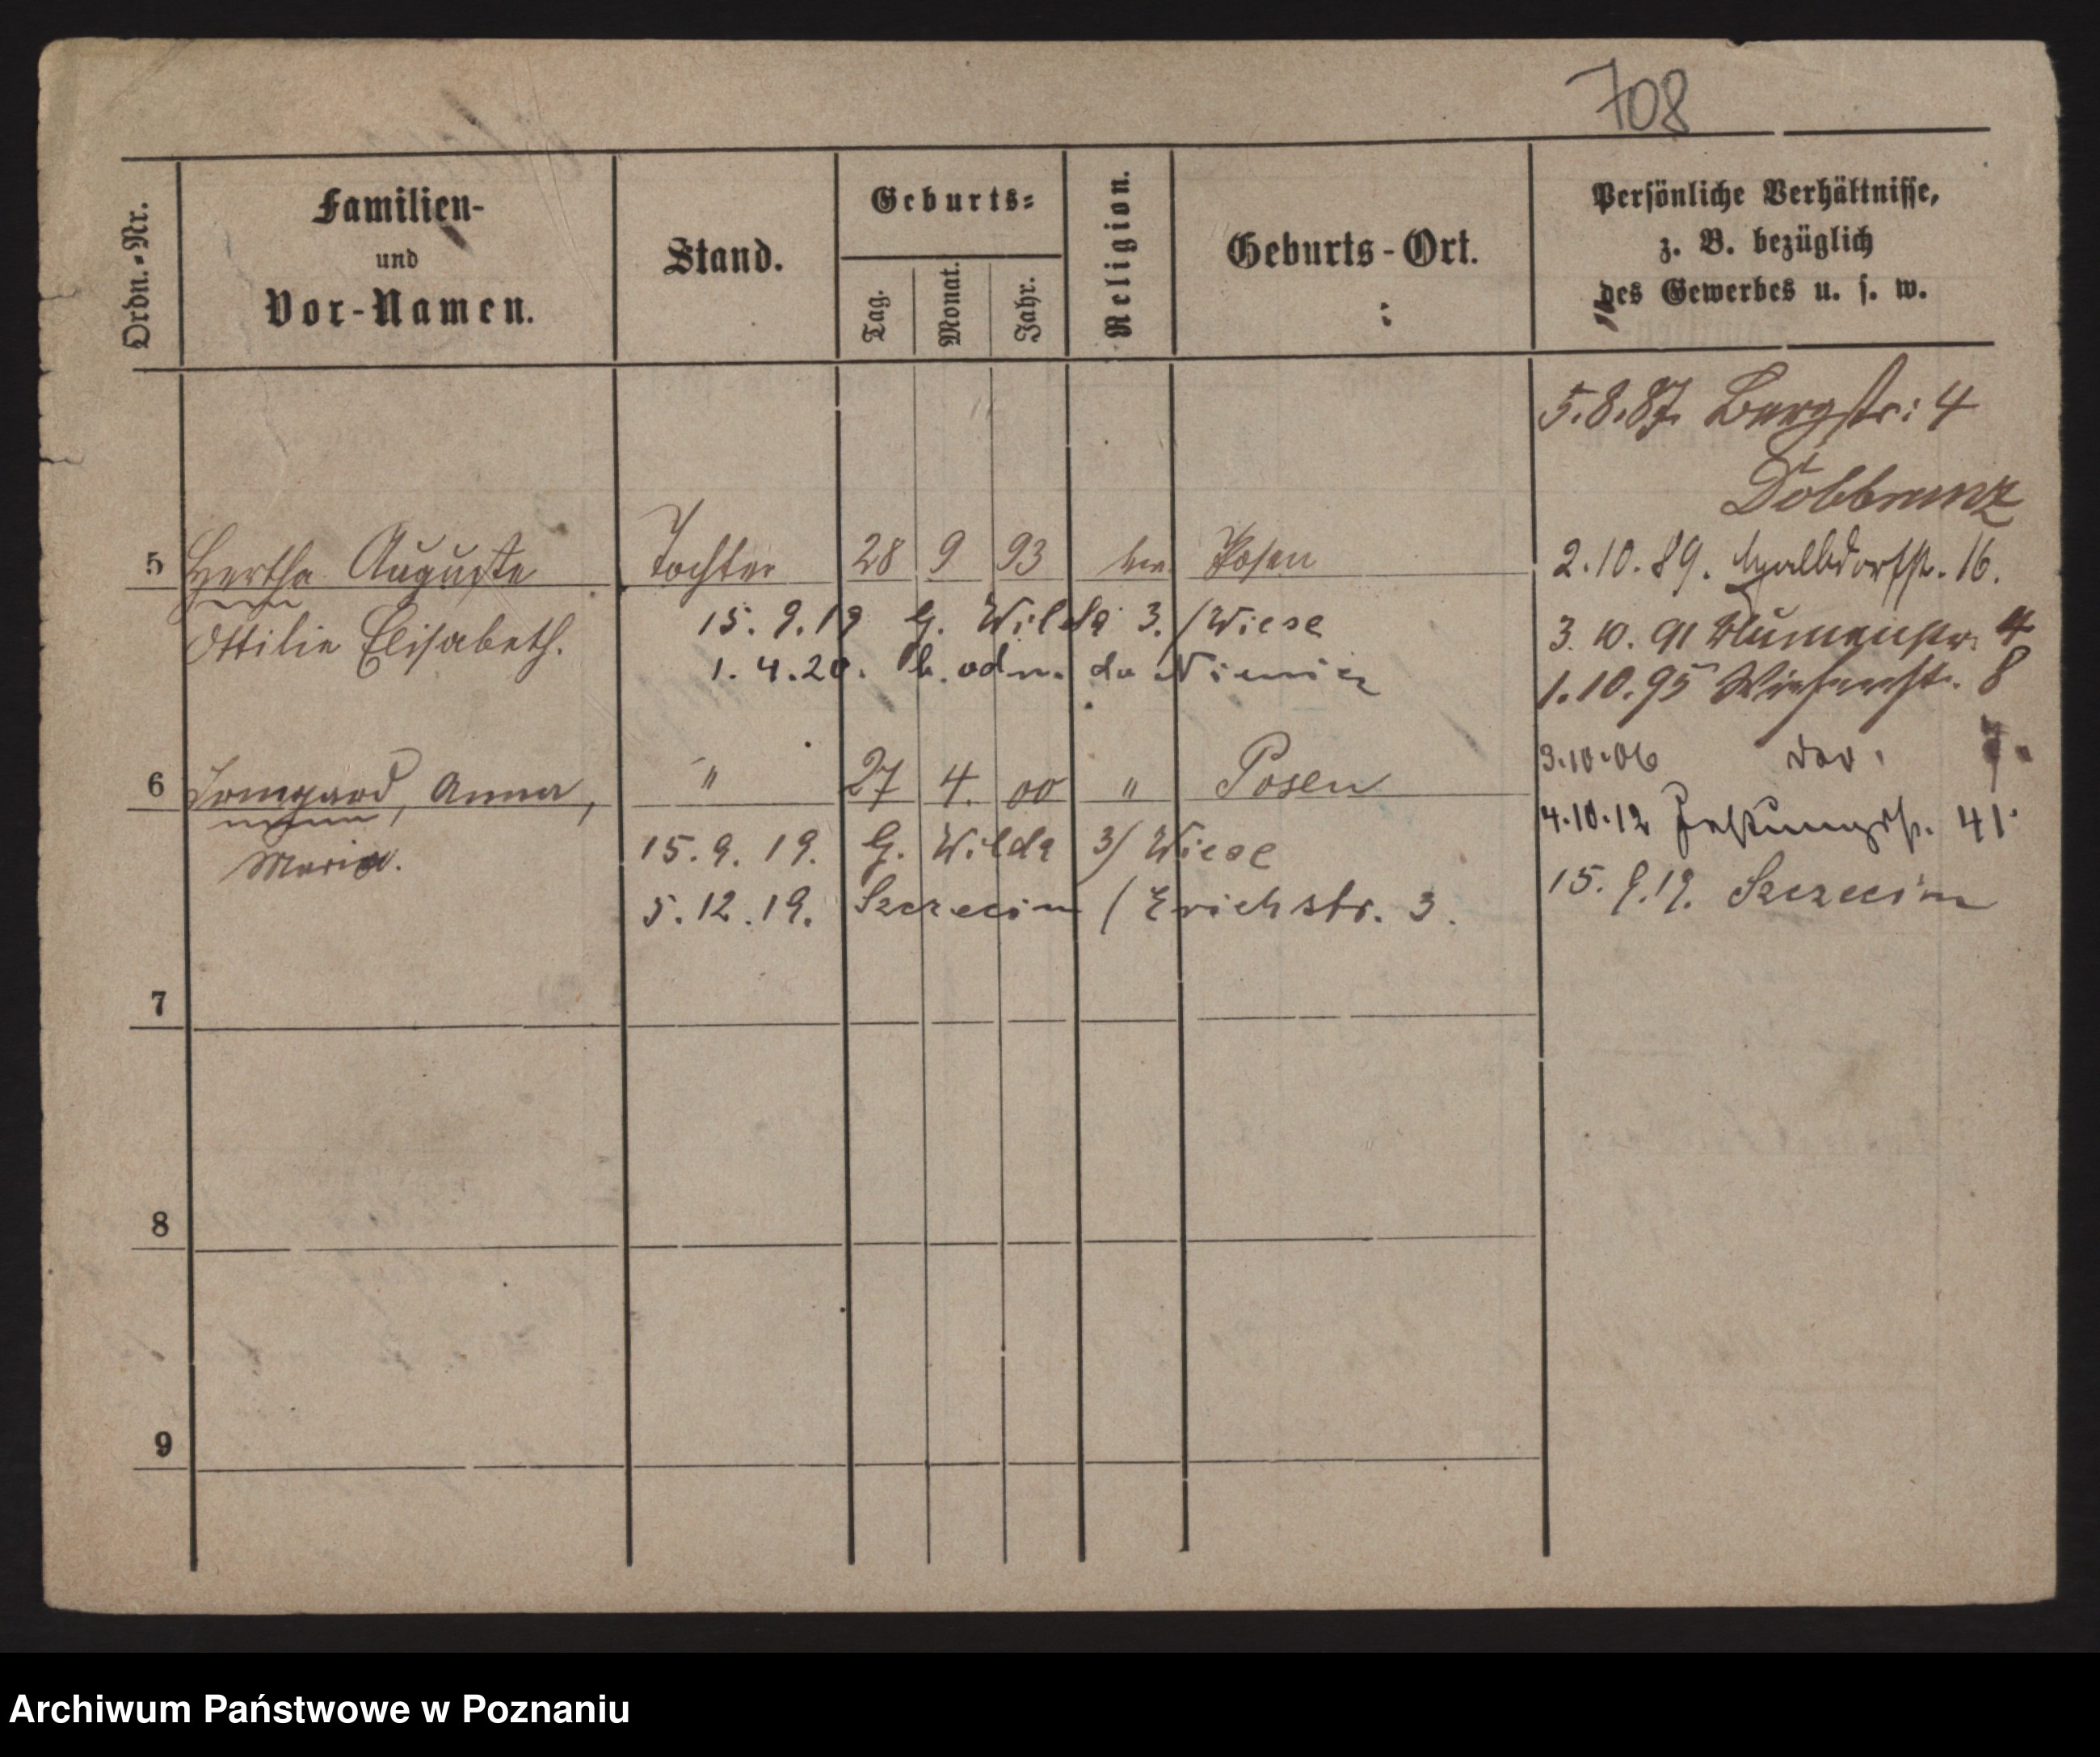 708
Ordn.-Nr.
Familien-
und
Vor-Namen.
Stand.
Geburts-
Tag.
Monat.
Jahr.
Religion.
Geburts-Ort.
Persönliche Verhältnisse,
z. B. bezüglich
des Gewerbes u. s. w.
5.8.87. Bergstr: 4
5 Hertha Auguste Tochter 28 9 93 Posen
Ottilie Elisabeth.
15. 9. 19 G. Wilda 3. / Wiese
1. 4. 20. do Niemiec
2.10.89. Halbdorfstr. 16.
3. 10. 91 Blumenstr. 4
1.10.95 Wiesenstr. 8
6 Irmgard, Anna, " 27 4. 00 " Posen
Maria.
15. 9. 19. G. Wilda 3/ Wiese
5. 12. 19. Szczecin / Erichstr. 3.
3.10.06
4.10.12 Festungsstr. 41.
15. 9. 19. Szczecin
7
8
9
Archiwum Państwowe w Poznaniu